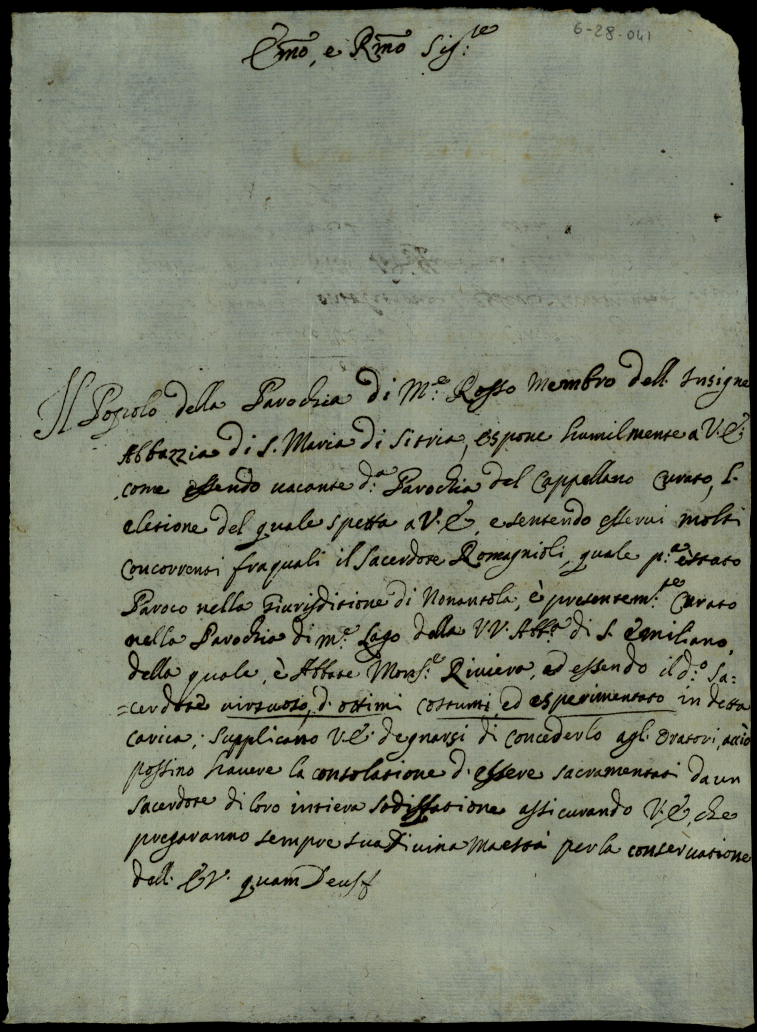 6-28-041
Emo, e Rmo Sig:re
Il Popolo della Parochia di M:e Rosso Membro dell' Insigne
Abbazzia di S. Maria di Sitria, espone humilmente a V.E.
come essendo vacante d:a Parochia del Cappellano Curato, l'
eletione del quale spetta a V.E., e sentendo esservi molti
concorrenti fra quali il Sacerdote Romagnioli, quale p:a è stato
Paroco nella Giurisditione di Nonantola, è presentem:te Curato
nella Parochia di m:e Lago della V.V. Abb:a di S. Emiliano,
della quale, è Abbate Mons:e Riviera, ed essendo il d:o Sa=
=cerdote virtuoso, d'ottimi costumi, ed esperimentato in detta
carica; supplicano V.E. degnarsi di concederlo agl' Oratori, acciò
possino havere la consolatione d'essere sacramentati da un
sacerdote di loro intiera sodisfatione assicurando V.E., che
pregaranno sempre sua Divina Maestà per la conservatione
dell' E.V. quam Deus